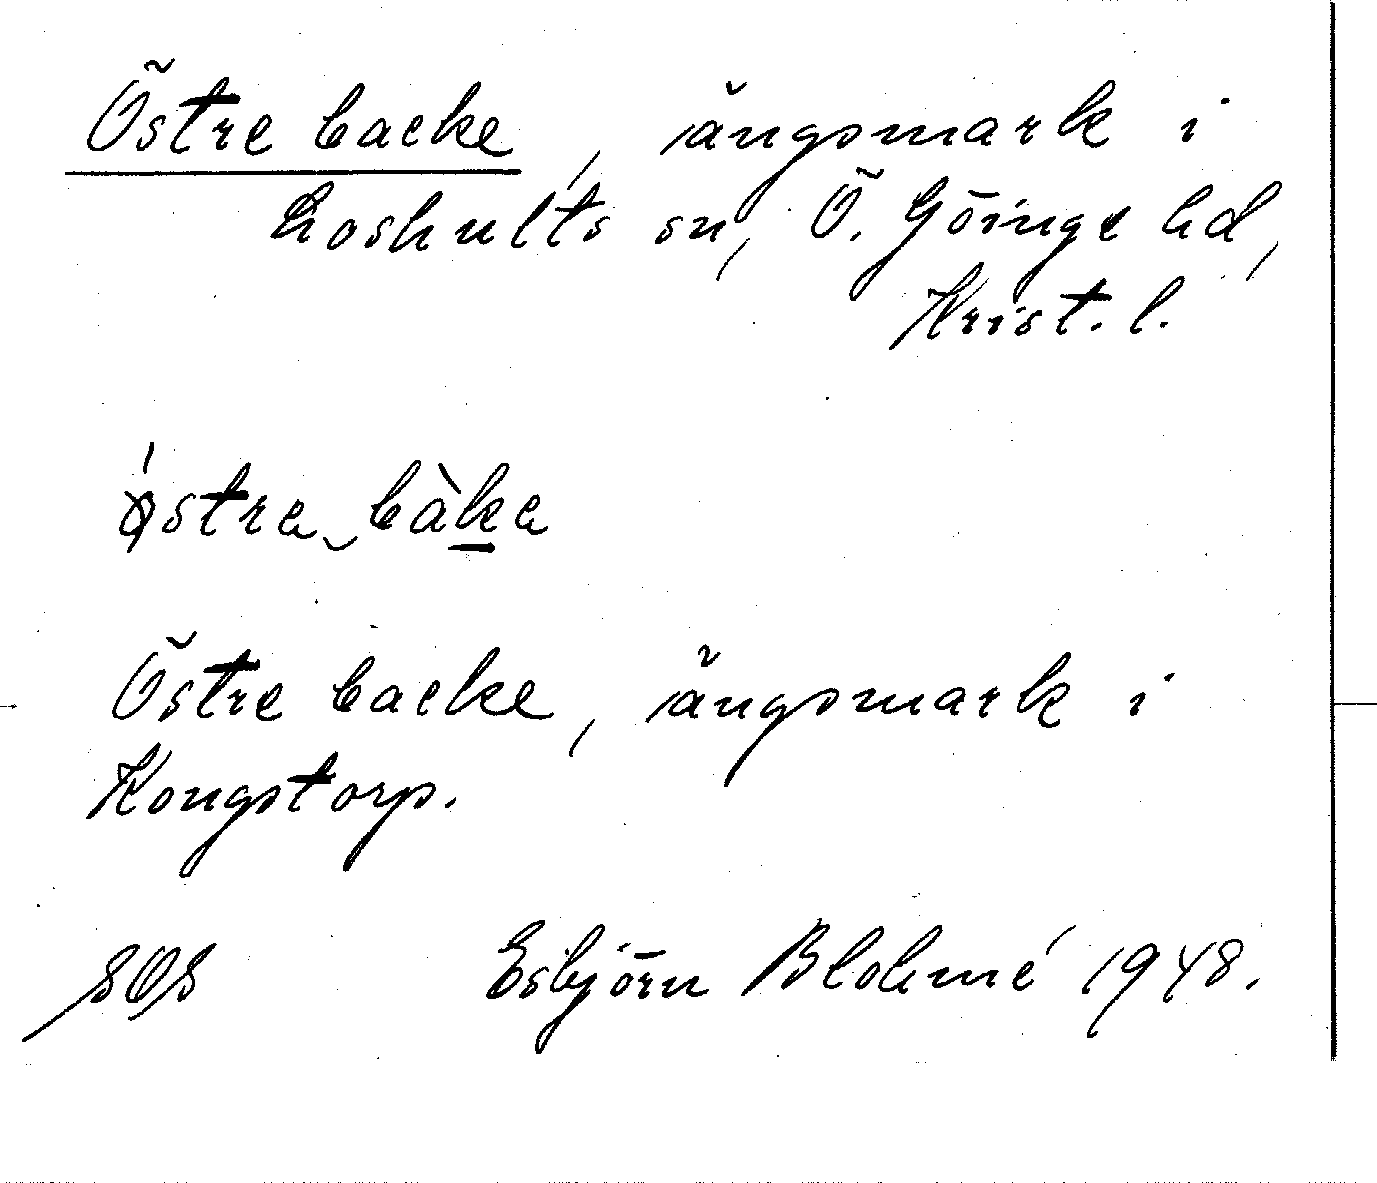 Östre backe, ängsmark i
Loshults sn, Ö. Göinge hd,
Krist. l.
östra bàka
Östre backe, ängsmark i
Kongstorp.
SOS Esbjörn Blohmé 1948.